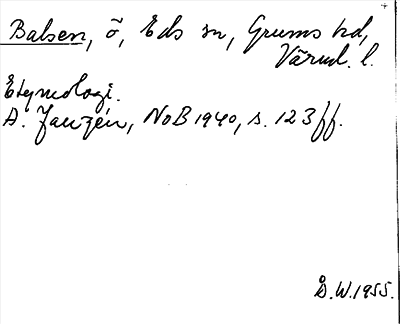 Balsen, ö, Eds sn, Grums hd,
Värml. l.
Etymologi.
A. Janzén, NoB 1940, s. 123 ff.
Å.W.1955.